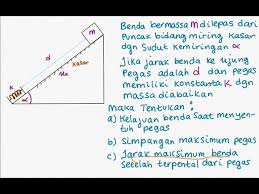 m
kasar
d
μk
K
α
Benda bermassa m dilepas dari
Puncak bidang miring Kasar
dgn Sudut Kemiringan α
Jika jarak benda ke ujung
Pegas adalah d dan pegas
memiliki konstanta K dgn
massa diabaikan
Maka Tentukan:
a) Kelajuan benda Saat menyen-
tuh pegas
b) Simpangan maksimum pegas
c) Jarak maksimum benda
Setelah terpental dari pegas